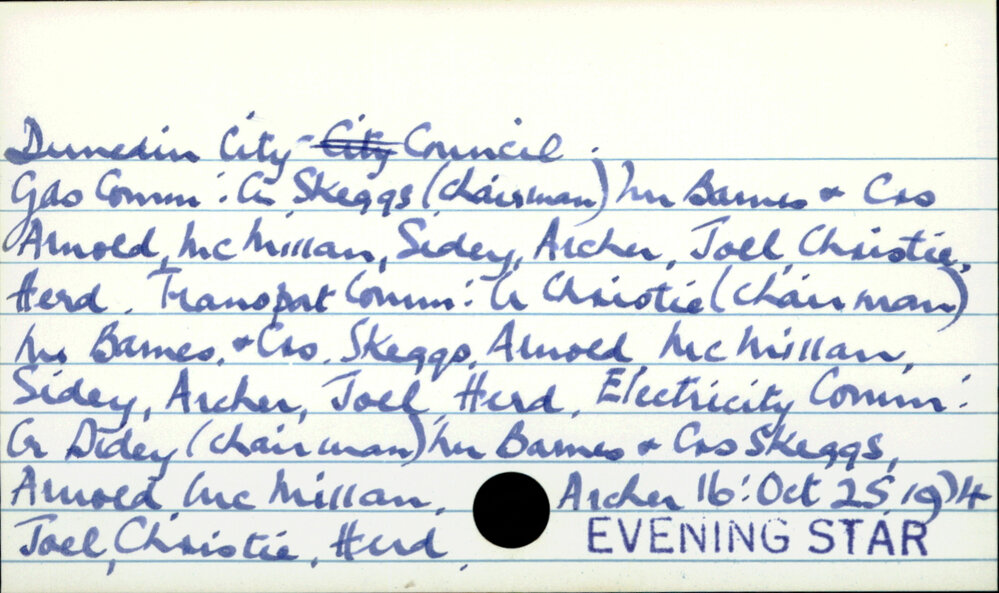 Dunedin City City Council.
Gas Comm: Cr Skeggs (chairman) Mr Barnes & Crs
Arnold, McMillan, Sidey, Archer, Joel, Christie,
Herd. Transport Comm: Cr Christie (chairman)
Mr Barnes, & Crs. Skeggs, Arnold McMillan,
Sidey, Archer, Joel, Herd. Electricity Comm:
Cr Sidey (chairman) Mr Barnes & Crs Skeggs,
Arnold, McMillan, Archer 16: Oct 25 1974
Joel, Christie, Herd,
EVENING STAR